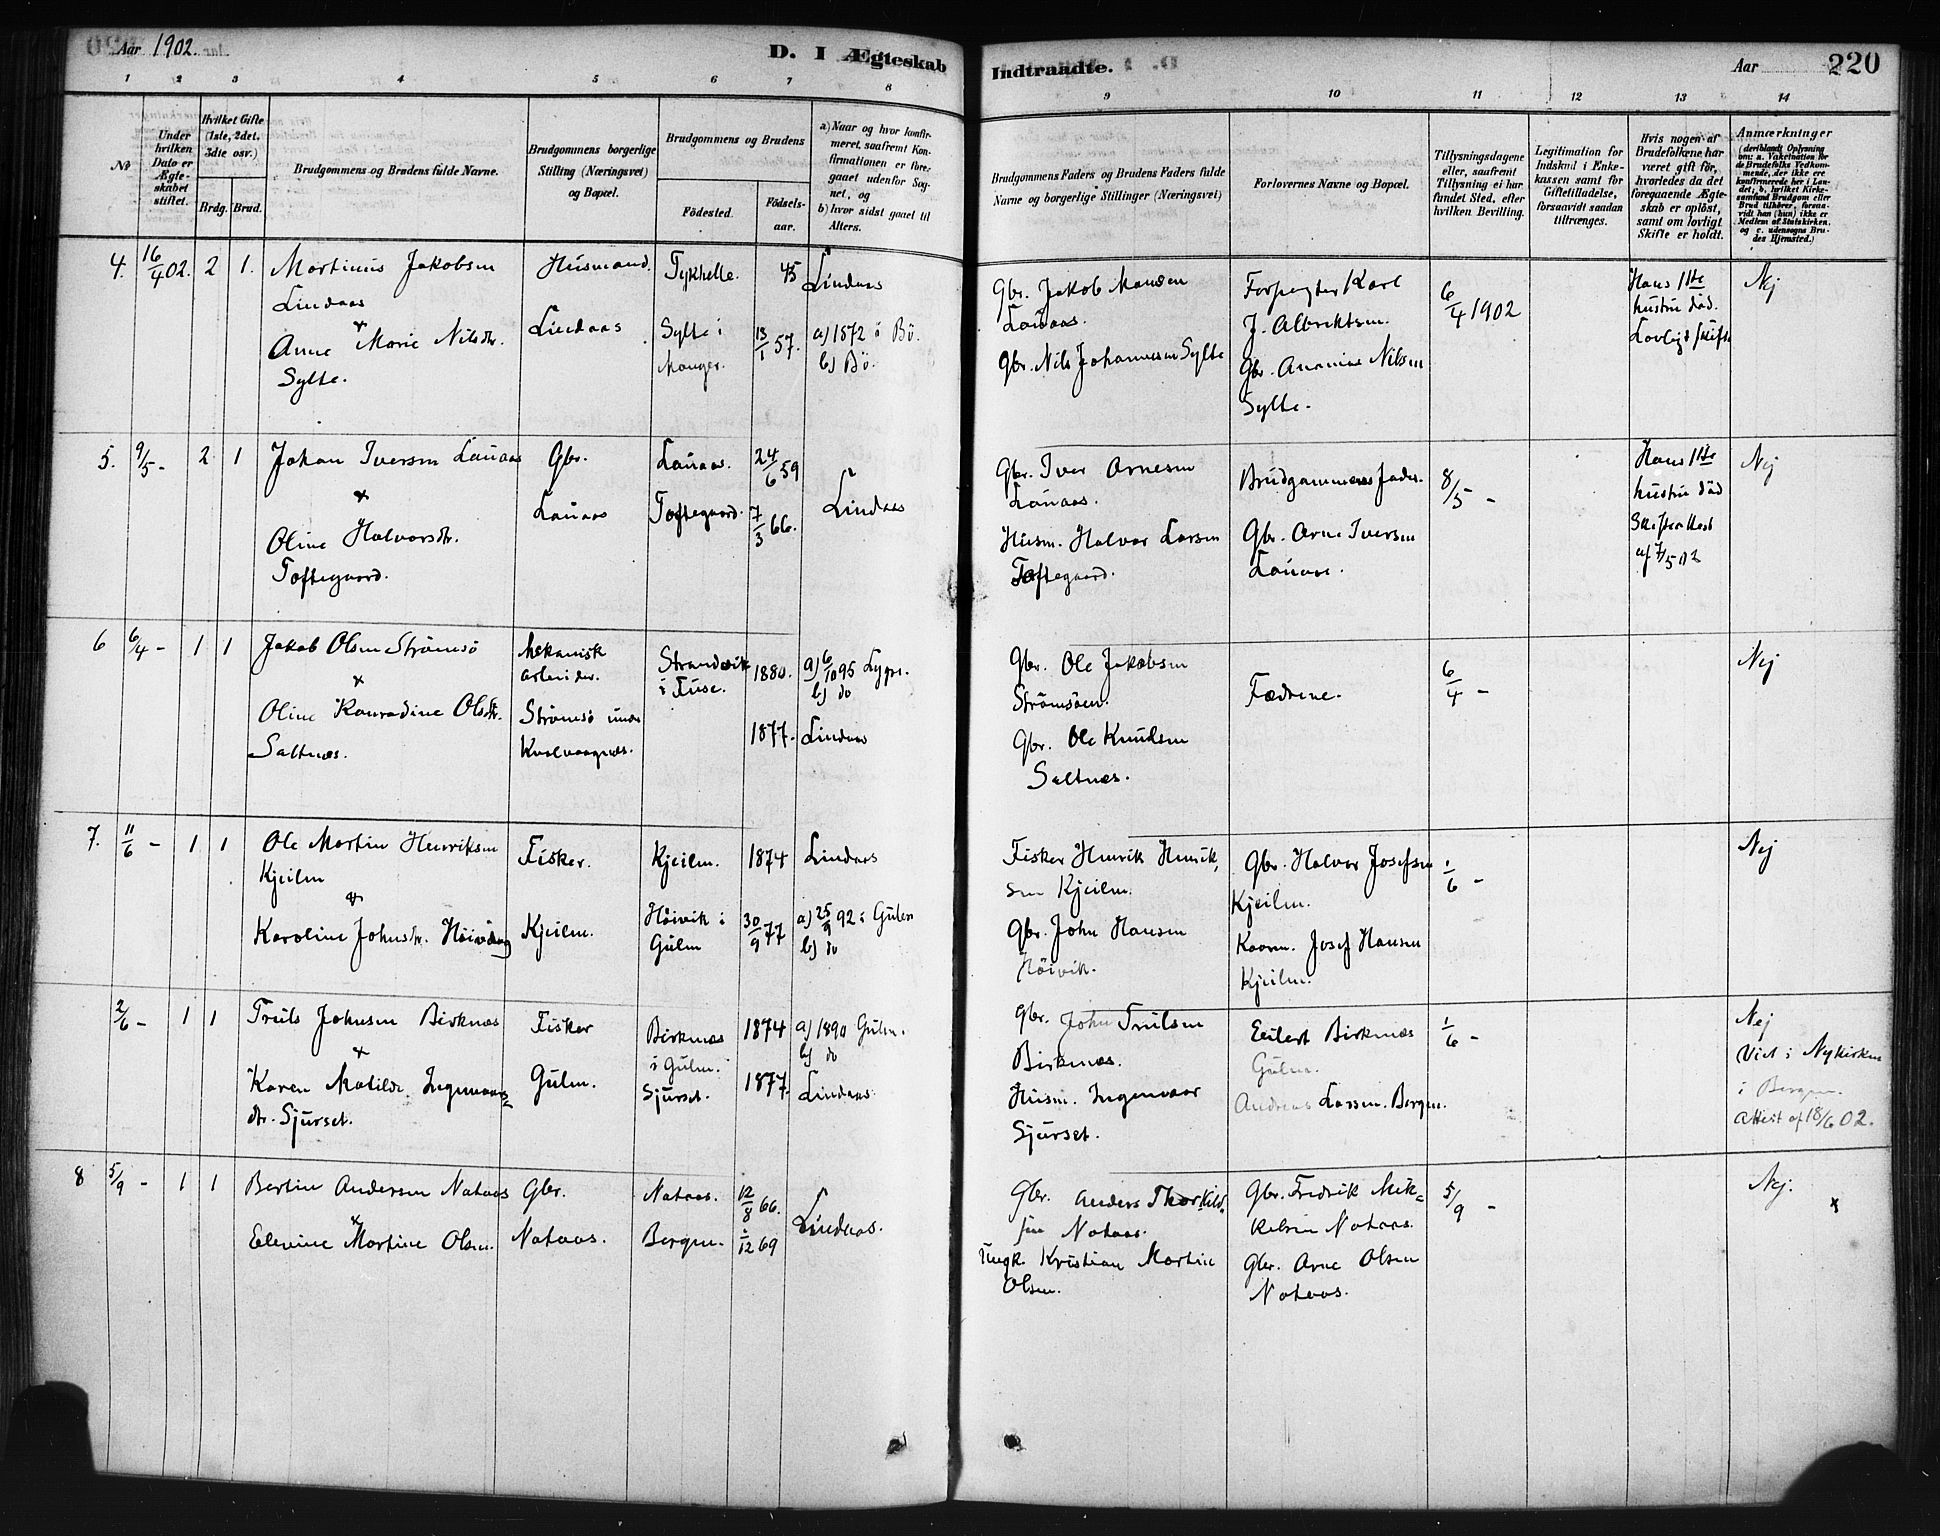 Aar 1902.
D. I Ægteskab
Indtraadte.
Aar
220
1 2 3 4 5 6 7 8
9 10 11 12 13 14
№
Under hvilken Dato er Ægteskabet stiftet.
Hvilket Gifte (1ste, 2det, 3die osv.)
Brdg. Brud.
Brudgommens og Brudens fulde Navne.
Brudgommens borgerlige Stilling (Næringsvei) og Bopæl.
Brudgommens og Brudens
Födested.
Födsels-aar.
a) Naar og hvor konfirmeret, saafremt Konfirmationen er foregaaet udenfor Sognet, og
b) hvor sidst gaaet til Alters.
Brudgommens Faders og Brudens Faders fulde Navne og borgerlige Stillinger (Næringsvei)
Forlovernes Navne og Bopæl.
Tillysningsdagene eller, saafremt Tillysning ei har fundet Sted, efter hvilken Bevilling.
Legitimation for Indskud i Enkekassen samt for Giftetilladelse, forsaavidt saadan tiltrænges.
Hvis nogen af Brudefolkene har været gift för, hvorledes da det foregaaende Ægteskab er oplöst, samt om lovligt Skifte er holdt.
Anmærkninger
(deriblandt Oplysning om: a. Vaksination for de Brudefolks Vedkommende, der ikke ere konfirmerede her i Landet; b. hvilket Kirkesamfund Brudgom eller Brud tilhörer, forsaavidt han (hun) ikke er Medlem af Statskirken, og c. udensogns Brudes Hjemsted.)
4. 16/4 02. 2 1. Martinus Jakobsen
Lindaas
Anne Marie Nilsdtr.
Sylte.
Husmand.
Lindaas
Tykhelle. 45
Sylte i
Manger.
13/1 57.
Lindaas
a) 1872 i Bö.
b) Bö.
Gbr. Jakob Monsen
Lauaas.
Gbr. Nils Johannesen Sylte
Forpagter Karl
J. Albriktsen.
Gbr. Ananias Nilsen
Sylte.
6/4 1902
Hans 1ste
hustru död.
Lovligt skifte
Nej
5. 9/5 - 2 1 Johan Iversen Lauaas
Oline Halvorsdtr.
Toftegaard.
Gbr.
Lauaas
Lauaas. 24/6 59
Toftegaard. 7/3 66.
Lindaas
Gbr. Iver Arnesen
Lauaas.
Husm. Halvor Larsen
Toftegaard.
Brudgommens fader.
Gbr. Arne Iversen
Lauaas.
8/5 -
Hans 1ste
hustru död
Skifteattest
af 7/5 02
Nej
6 6/4 - 1 1 Jakob Olsen Strömsö
Oline Konradine Olsdtr.
Saltnæs.
Mekanisk
arbeider.
Strömsö under
Kvalvaagnæs.
Strandvik
i Fuse.
1880.
1877.
a) 6/10 95 Lygre.
b) do
Lindaas
Gbr. Ole Jakobsen
Strömsöen.
Gbr. Ole Knudsen
Saltnæs.
Fædrene.
6/4 -
Nej
7. 11/6 - 1 1 Ole Martin Henriksen
Kjeilen
&
Karoline Johnsdtr.
Fisker.
Kjeilen.
Kjeilen. 1874 Lindaas
Höivik i
Gulen
30/9 77
a) 25/9 92 i Gulen
b) do
Fisker Henrik Henrik-
sen Kjeilen.
Gbr. John Hansen
Höivik.
Gbr. Halvor Josefsen
Kjeilen.
Kaarm. Josef Hansen
Kjeilen.
1/6 -
Nej
2/6 - 1 1 Truls Johnsen Birknæs
Karen Matilde Ingemars=
dtr. Sjurset.
Fisker
Gulen.
Birknæs
i Gulen.
Sjurset.
1874
1877.
a) 1890 Gulen.
b) do
Lindaas
Gbr. John Trulsen
Birknæs.
Husm. Ingemaar
Sjurset.
Eilert Birknæs
Gulen.
Andreas Larsen. Bergen.
1/6 -
Nej
Viet i Nykirken
i Bergen.
Attest af 18/6 02.
8 5/9 - 1 1 Bertin Andersen Nataas
Elevine Martine Olsen.
Gbr.
Nataas.
Nataas. 12/8 66.
Bergen. 1/12 69
Lindaas.
Gbr. Anders Thorkild-
sen Nataas.
Ungk. Kristian Martin
Olsen.
Gbr. Fredrik Mik=
kelsen Nataas.
Gbr. Arne Olsen
Nataas.
5/9 -
Nej.
x